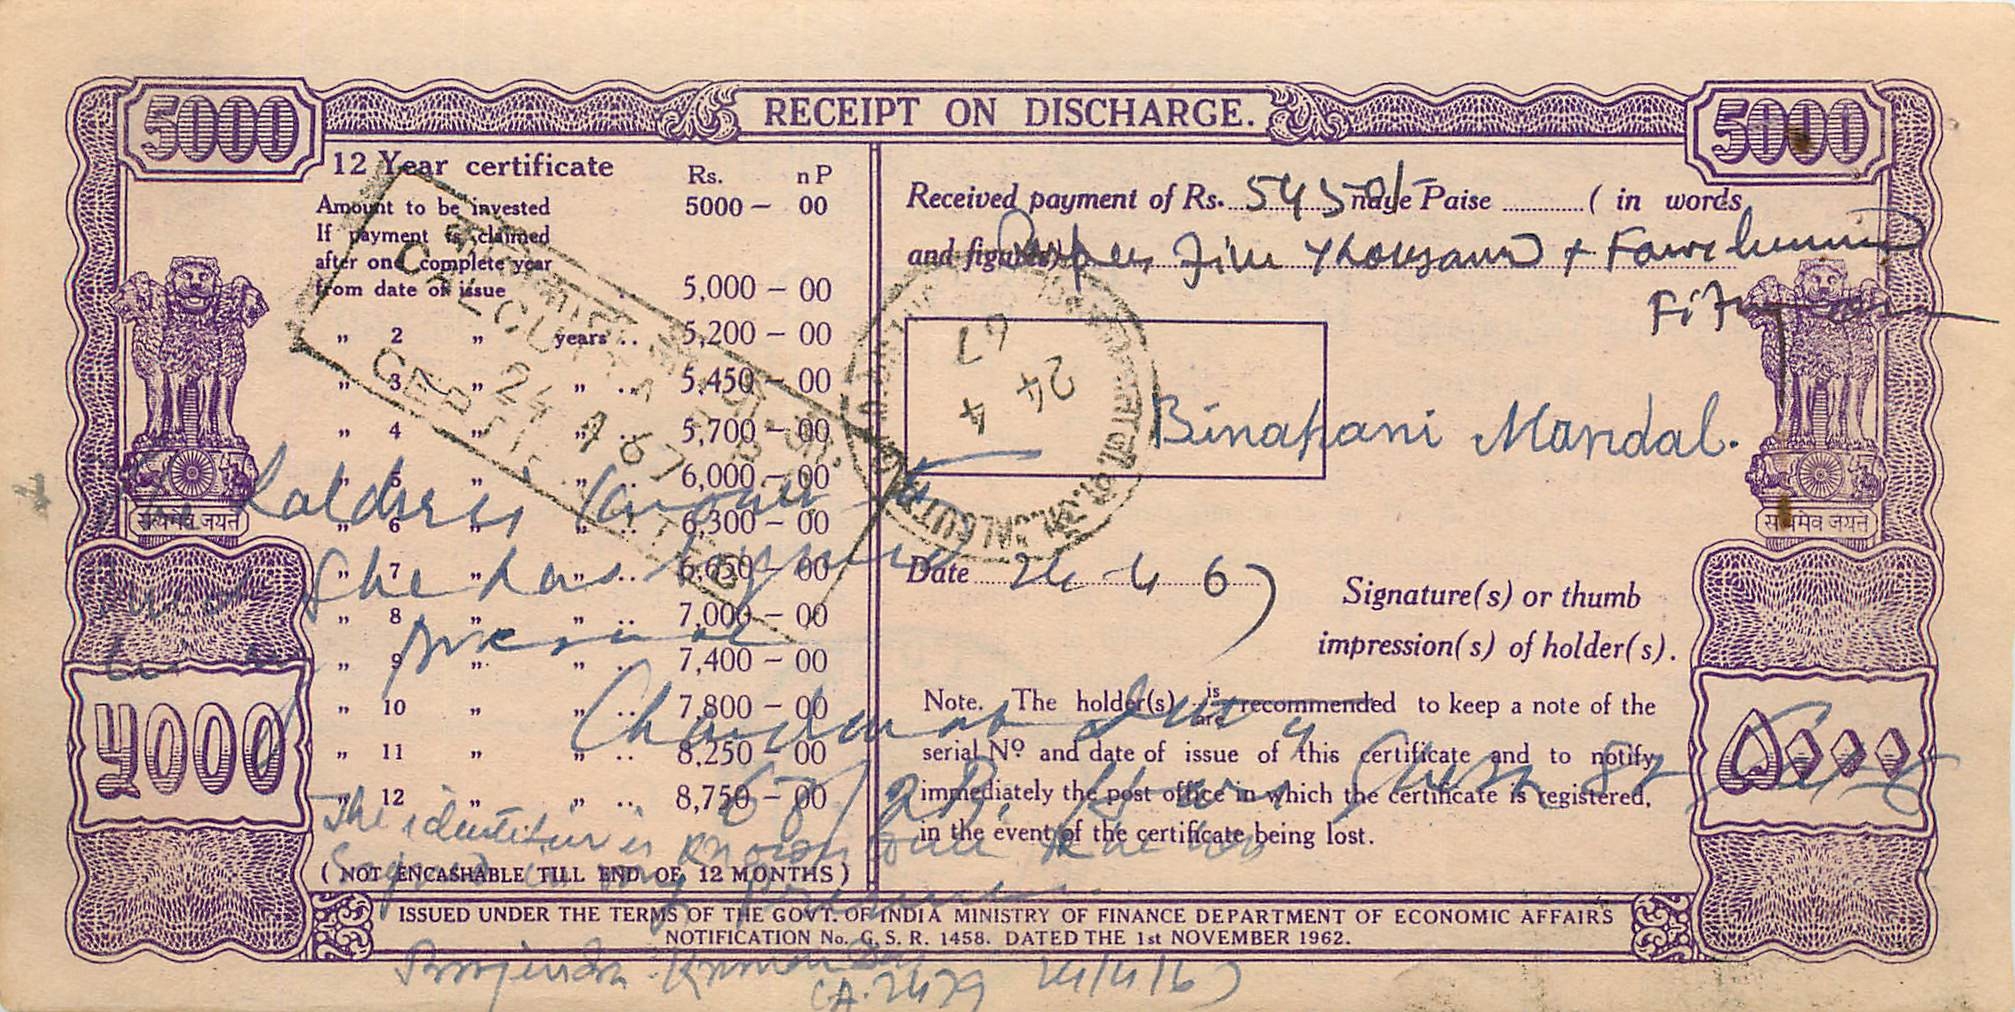 5000
RECEIPT ON DISCHARGE.
5000
12 Year certificate
Rs. nP
Amount to be invested 5000 — 00
If payment is claimed
after one complete year
from date of issue 5,000 — 00
„ 2 „ years .. 5,200 — 00
„ 3 „ „ .. 5,450 — 00
„ 4 „ „ .. 5,700 — 00
„ 5 „ „ .. 6,000 — 00
„ 6 „ „ .. 6,300 — 00
„ 7 „ „ .. 6,650 — 00
„ 8 „ „ .. 7,000 — 00
„ 9 „ „ .. 7,400 — 00
„ 10 „ „ .. 7,800 — 00
„ 11 „ „ .. 8,250 — 00
„ 12 „ „ .. 8,750 — 00
( NOT ENCASHABLE TILL END OF 12 MONTHS )
Received payment of Rs. 5450/- naye Paise ............ ( in words
and figures) Rupees Five Thousand + Four hundred
Fifty
Binapani Mandal.
Date 24-4-67
Signature(s) or thumb
impression(s) of holder(s).
Note. The holder(s) is/are recommended to keep a note of the
serial Nº and date of issue of this certificate and to notify
immediately the post office in which the certificate is registered,
in the event of the certificate being lost.
सत्यमेव जयते
सत्यमेव जयते
५000
CALCUTTA
24 4 67
24
4
67
CALCUTTA
holder is known
she has signed
in my presence
The identifier is known
Signed in my presence
Kumar
CA. 2479 24/4/67
ISSUED UNDER THE TERMS OF THE GOVT. OF INDIA MINISTRY OF FINANCE DEPARTMENT OF ECONOMIC AFFAIRS
NOTIFICATION No. G. S. R. 1458. DATED THE 1st NOVEMBER 1962.